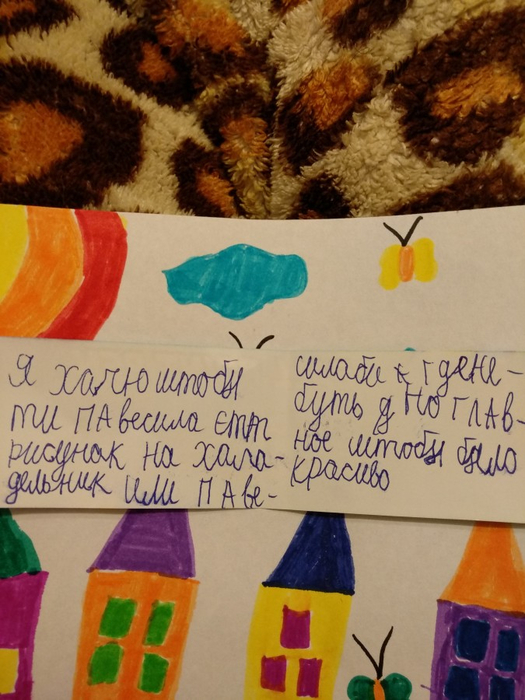 Я хачю штобы
ти павесила єтат
рисунак на хала-
дельник или паве-
силаби гдене-
буть д но глав-
ное штобы было
красиво